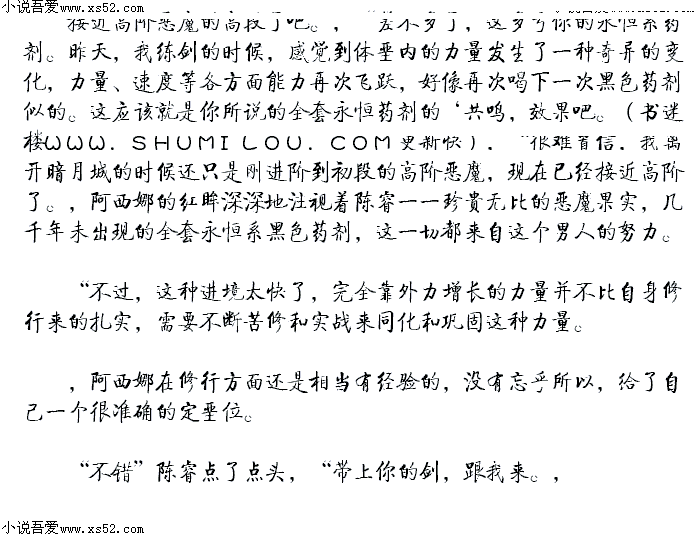 小说吾爱www.xs52.com 小说吾爱www.xs52.com
接近高阶恶魔的高段了吧。，“差不多了，这多亏你的永恒系药
剂。昨天，我练剑的时候，感觉到体垩内的力量发生了一种奇异的变
化，力量、速度等各方面能力再次飞跃，好像再次喝下一次黑色药剂
似的。这应该就是你所说的全套永恒药剂的‘共鸣，效果吧。（书迷
楼ＷＷＷ．ＳＨＵＭＩＬＯＵ．ＣＯＭ更新快）．“很难置信．我离
开暗月城的时候还只是刚进阶到初段的高阶恶魔，现在已经接近高阶
了。，阿西娜的红眸深深地注视着陈睿一一珍贵无比的恶魔果实，几
千年未出现的全套永恒系黑色药剂，这一切都来自这个男人的努力。
“不过，这种进境太快了，完全靠外力增长的力量并不比自身修
行来的扎实，需要不断苦修和实战来同化和巩固这种力量。
，阿西娜在修行方面还是相当有经验的，没有忘乎所以，给了自
己一个很准确的定垩位。
“不错”陈睿点了点头，“带上你的剑，跟我来。，
小说吾爱www.xs52.com 小说吾爱www.xs52.com